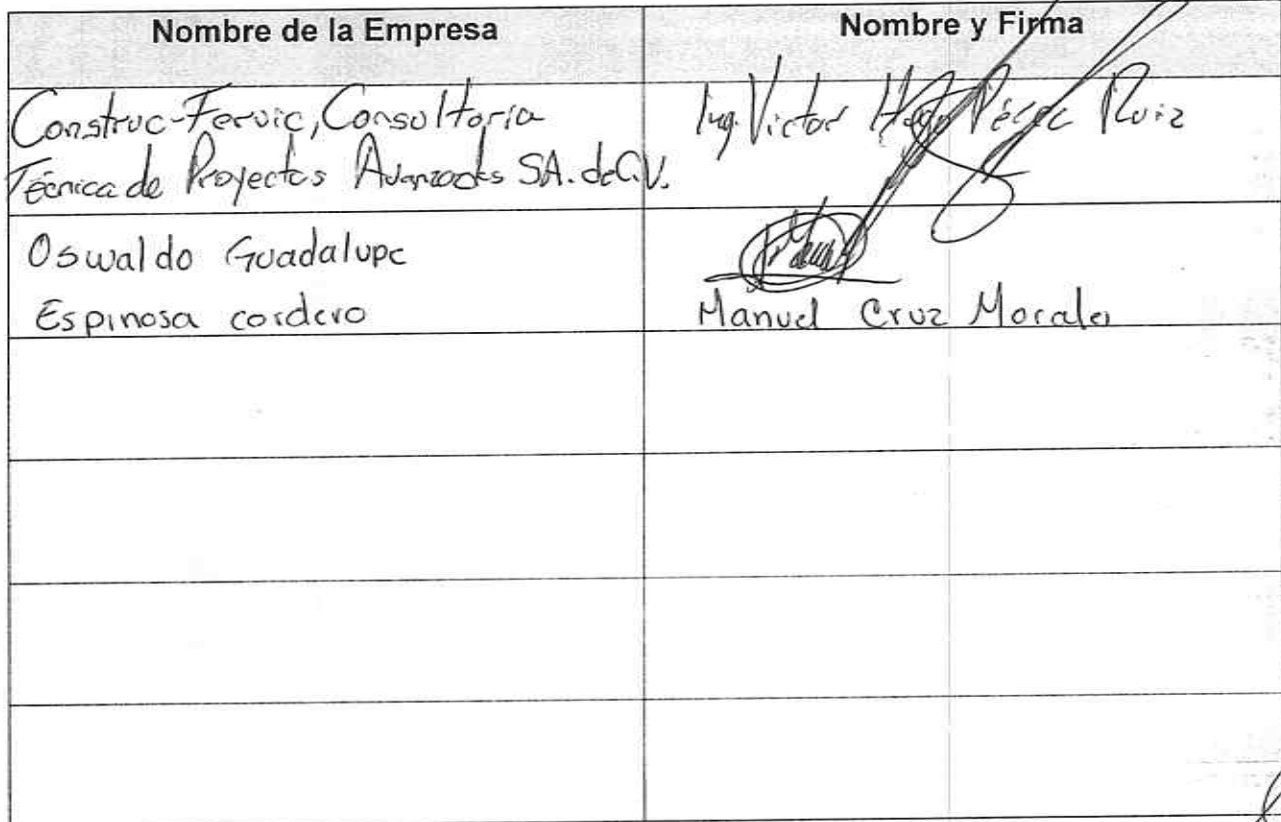 Nombre de la Empresa
Nombre y Firma
Construc-Fervic, Consultoria
Técnica de Proyectos Avanzados SA. de C.V.
Ing. Victor Hugo Pérez Ruiz
Oswaldo Guadalupe
Espinosa cordero
Manuel Cruz Morales